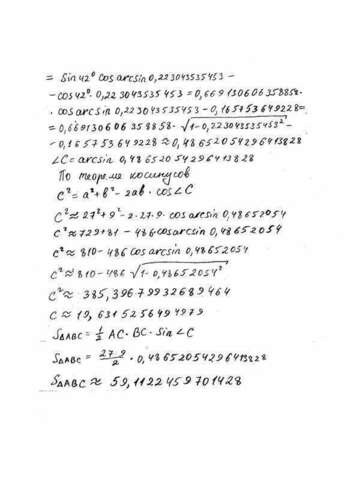 = Sin 42° cos arcsin 0,223043535453 –
– cos 42° · 0,223043535453 = 0,669130606358858 ·
· cos arcsin 0,223043535453 – 0,165753649228 =
= 0,669130606358858 · √1-0,223043535453² –
– 0,165753649228 ≈ 0,48652054296413828
∠C = arcsin 0,48652054296413828
По теореме косинусов
C² = a² + b² – 2ab · cos∠C
C² ≈ 27² + 9² – 2·27·9 · cos arcsin 0,48652054
C² ≈ 729 + 81 – 486 cos arcsin 0,48652054
C² ≈ 810 – 486 cos arcsin 0,48652054
C² ≈ 810 – 486 √1-0,48652054²
C² ≈ 385,39679932689464
C ≈ 19,6315256494979
S△ABC = 1/2 AC · BC · Sin∠C
S△ABC = 27·9/2 · 0,48652054296413828
S△ABC ≈ 59,1122459701428